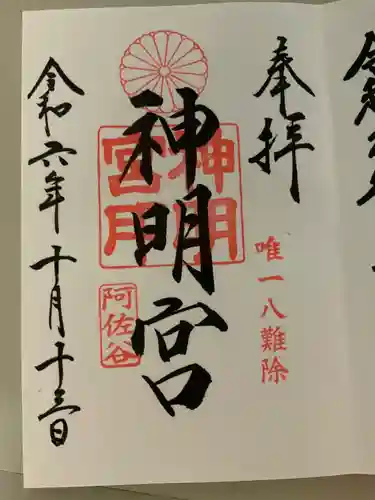 奉拝
唯一八難除
神明宮
神明宮
阿佐谷
令和六年十月十三日